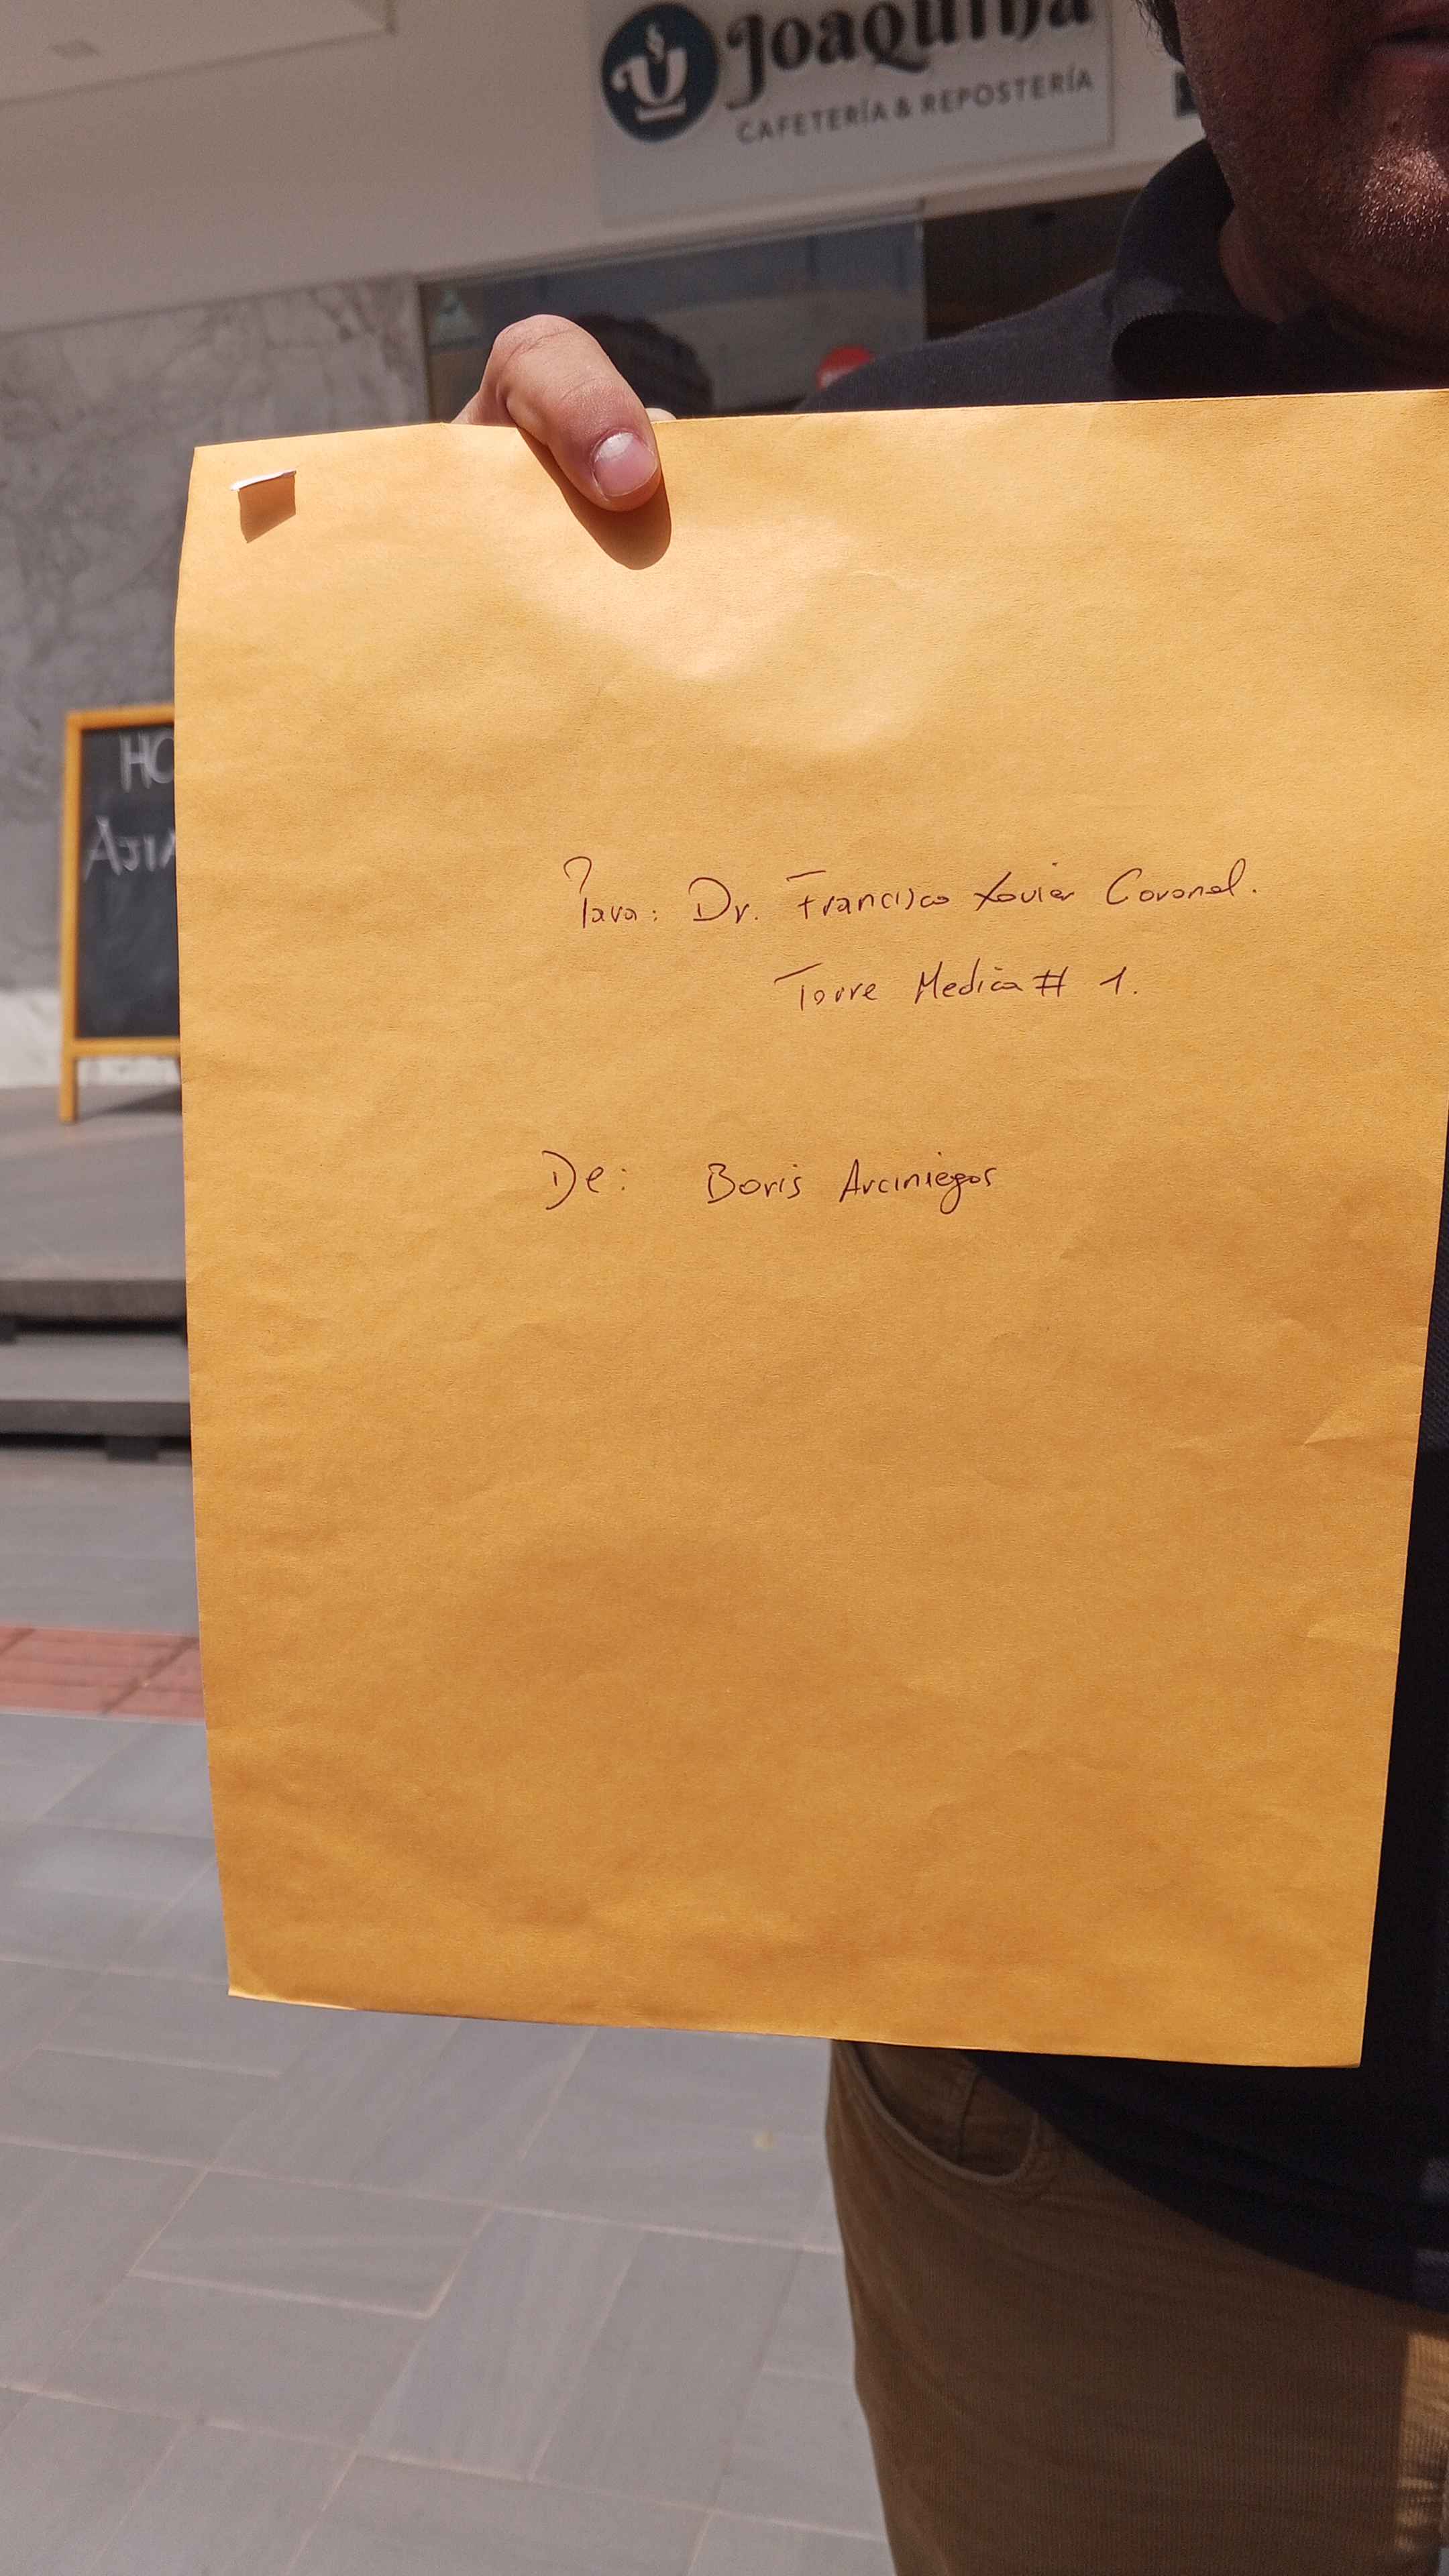 Joaquina
CAFETERÍA & REPOSTERÍA
HO
AJIA
Para: Dr. Francisco Xavier Coronel.
Torre Medica # 1.
De: Boris Arciniegas